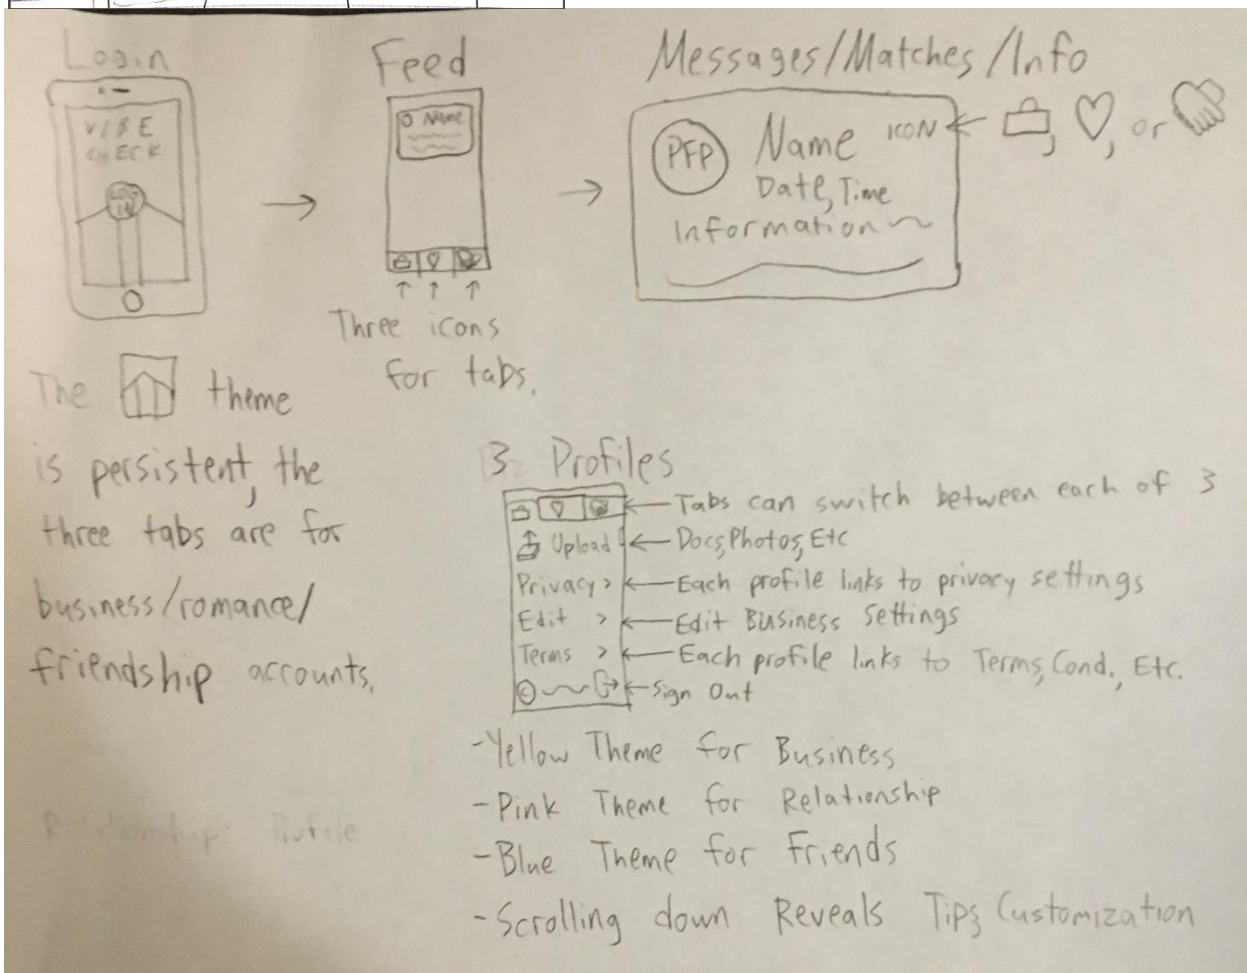 Login
VIBE
CHECK
LOG
IN
Feed
Name
Three icons
for tabs.
Messages/Matches/Info
PFP
Name
ICON
, , or
Date, Time
Information
The theme
is persistent, the
three tabs are for
business/romance/
friendship accounts.
3 Profiles
Tabs can switch between each of 3
Upload
Docs, Photos, Etc
Privacy >
Each profile links to privacy settings
Edit >
Edit Business Settings
Terms >
Each profile links to Terms, Cond., Etc.
Sign Out
-Yellow Theme for Business
-Pink Theme for Relationship
-Blue Theme for Friends
-Scrolling down Reveals Tips, Customization
Relationships Profile